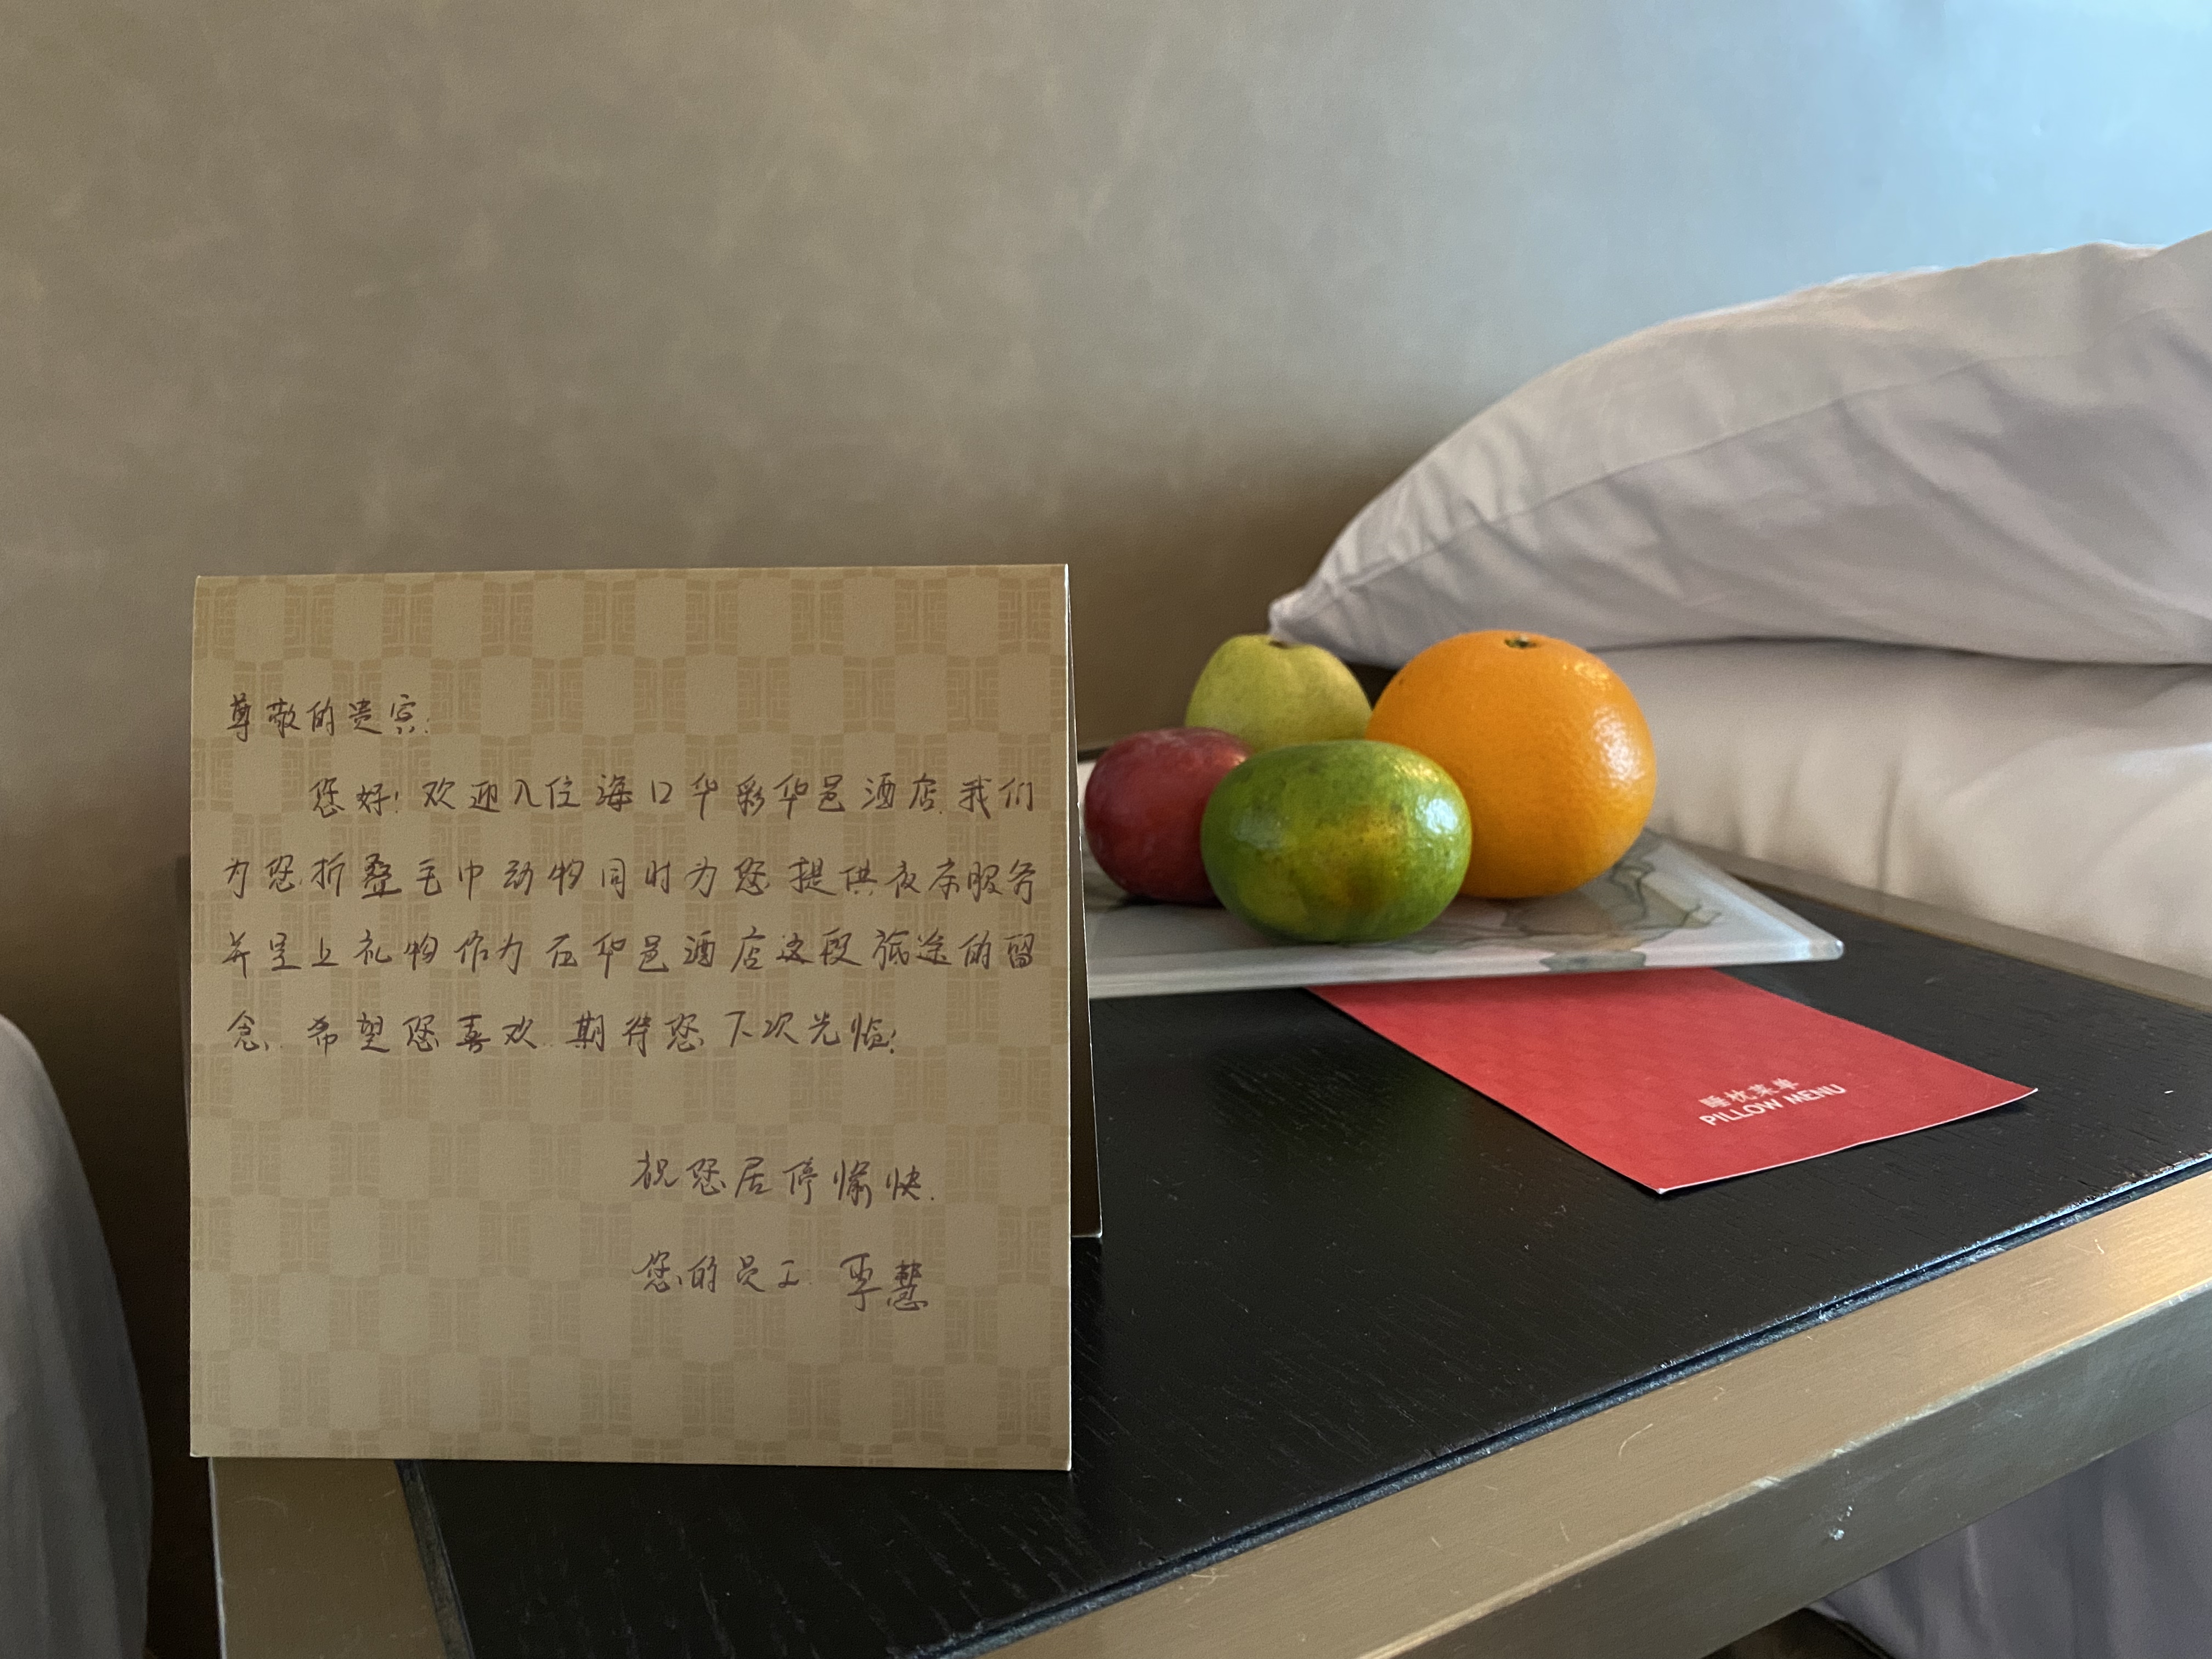 尊敬的贵宾:
您好!欢迎入住海口华彩华邑酒店.我们
为您折叠毛巾动物同时为您提供夜床服务
并呈上礼物作为在华邑酒店这段旅途的留
念.希望您喜欢.期待您下次光临!
祝您居停愉快.
您的员工:覃慧
睡枕菜单
PILLOW MENU